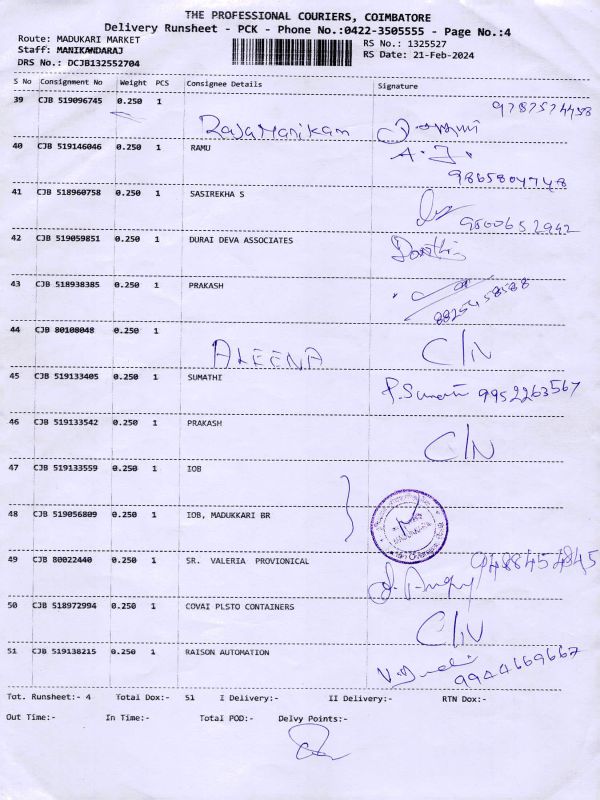 THE PROFESSIONAL COURIERS, COIMBATORE
Delivery Runsheet - PCK - Phone No.:0422-3505555 - Page No.:4
Route: MADUKARI MARKET
RS No.: 1325527
Staff: MANIKANDARAJ
RS Date: 21-Feb-2024
DRS No.: DCJB132552704
S No Consignment No Weight PCS Consignee Details Signature
39 CJB 519096745 0.250 1 RajaManikam
40 CJB 519146046 0.250 1 RAMU A.J.
9865804748
41 CJB 518960758 0.250 1 SASIREKHA S
9600652942
42 CJB 519059851 0.250 1 DURAI DEVA ASSOCIATES
43 CJB 518938385 0.250 1 PRAKASH
8825458588
44 CJB 80108048 0.250 1 ALEENA C/N
45 CJB 519133405 0.250 1 SUMATHI P. Sumati 9952263567
46 CJB 519133542 0.250 1 PRAKASH C/N
47 CJB 519133559 0.250 1 IOB
48 CJB 519056809 0.250 1 IOB, MADUKKARI BR
49 CJB 80022440 0.250 1 SR. VALERIA PROVIONICAL
50 CJB 518972994 0.250 1 COVAI PLSTO CONTAINERS C/N
51 CJB 519138215 0.250 1 RAISON AUTOMATION
9944669667
Tot. Runsheet:- 4 Total Dox:- 51 I Delivery:- II Delivery:- RTN Dox:-
Out Time:- In Time:- Total POD:- Delvy Points:-